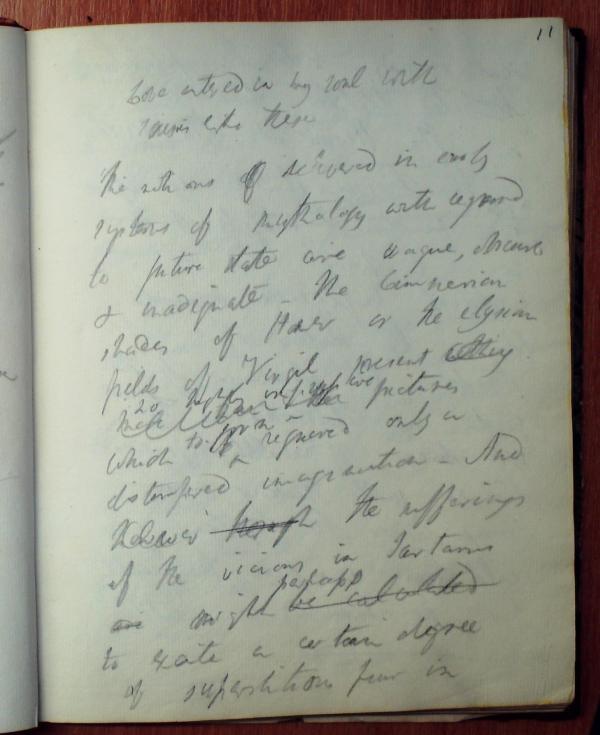 11
Love entered in my soul with
like these
The notions delivered in early
systems of mythology with regard
to future state are vague, obscure
& inadequate - The Cimmerian
shades of Homer or the elysian
fields of Virgil present
pictures
which to form required only a
distempered imagination - And
the sufferings
of the vicious in Tartarus
perhaps
are might be calculated
to excite a certain degree
of superstitious fear in